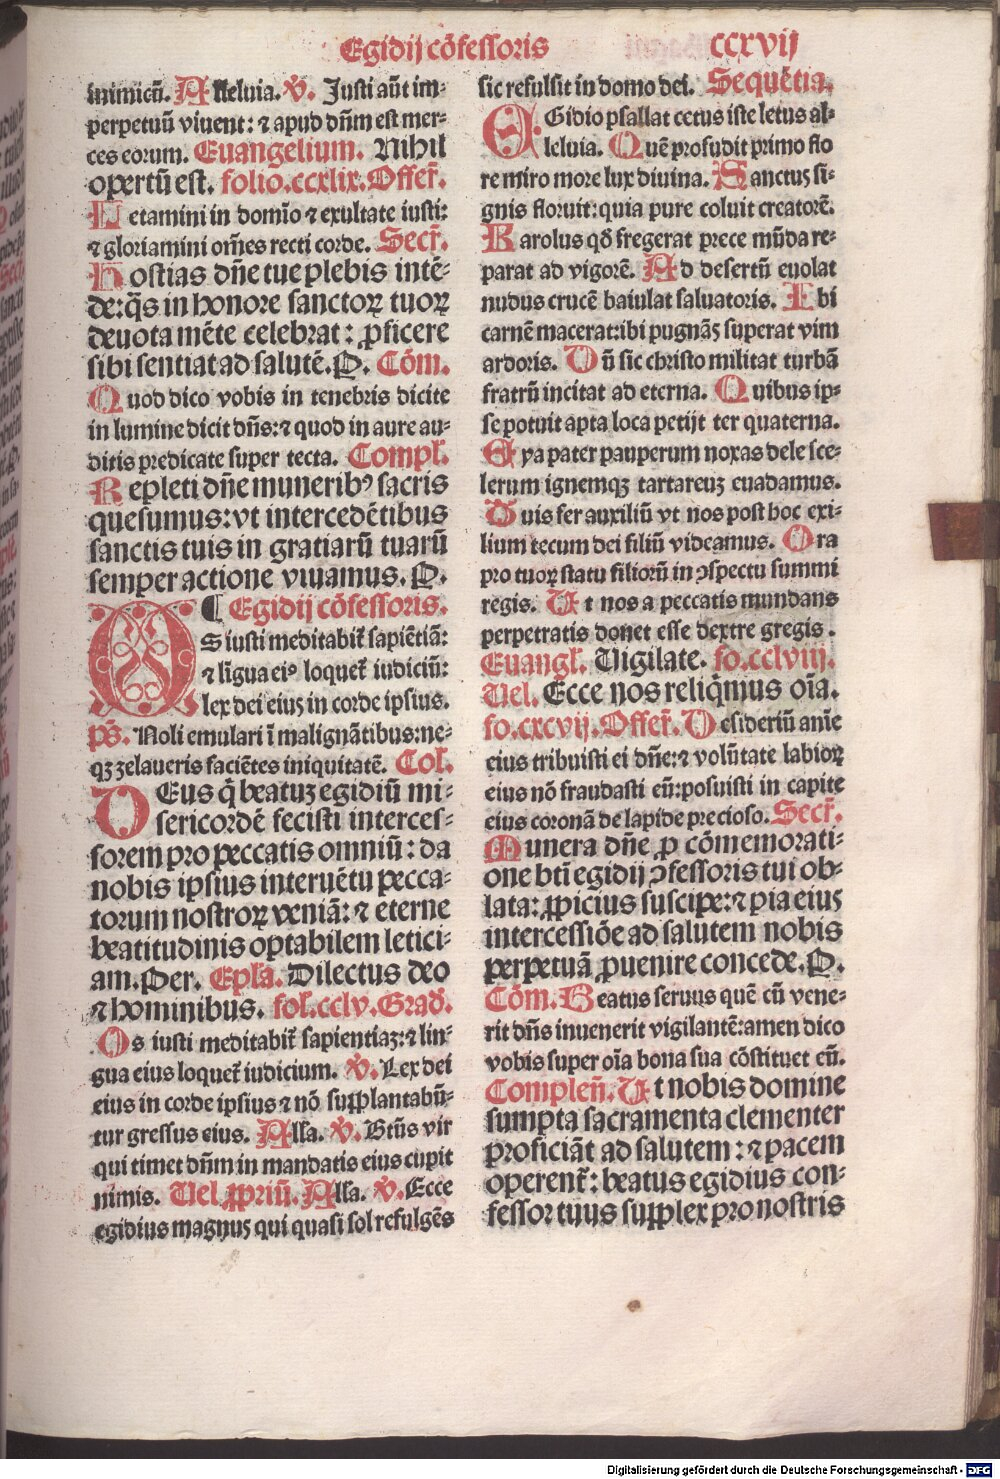 Egidij cōfessoris
ccxvij
inimicū. Alleluia. ℣. Justi aūt im-
perpetuū viuent: ⁊ apud dn̄m est mer-
ces eorum. Euangelium. Nihil
opertū est. folio.ccxlix. Offer̄.
Letamini in domīo ⁊ exultate iusti:
⁊ gloriamini om̄es recti corde. Secr̄.
Hostias dn̄e tue plebis intē-
de: q̄s in honore sanctoꝝ tuoꝝ
deuota mēte celebrat: ꝓficere
sibi sentiat ad salutē. P. Cōm.
Quod dico vobis in tenebris dicite
in lumine dicit dn̄s: ⁊ quod in aure au-
ditis predicate super tecta. Compl̄.
Repleti dn̄e muneribꝰ sacris
quesumus: vt intercedētibus
sanctis tuis in gratiarū tuarū
semper actione viuamus. P.
¶ Egidij cōfessoris.
OS iusti meditabit̄ sapiētiā:
⁊ līgua eiꝰ loquet̄ iudiciū:
lex dei eiuz in corde ipsius.
ps̄. Noli emulari ī malignātibus: ne-
qꝫ zelaueris faciētes iniquitatē. Col̄.
DEus q̄ beatuz egidiū mi-
sericordē fecisti interces-
sorem pro peccatis omniū: da
nobis ipsius interuētu pecca-
torum nostroꝝ veniā: ⁊ eterne
beatitudinis optabilem letici-
am. Per. Epl̄a. Dilectus deo
⁊ hominibus. fol.cclv. Grad̄.
Os iusti meditabit̄ sapientiaz: ⁊ lin-
gua eius loquet̄ iudicium. ℣. Lex dei
eius in corde ipsius ⁊ nō supplantabūt-
tur gressus eius. All̄a. ℣. Bt̄us vir
qui timet dn̄m in mandatis eius cupit
nimis. Uel ꝓpriū. All̄a. ℣. Ecce
egidius magnuz qui quasi sol refulgēs
sic refulsit in domo dei. Sequētia.
EGidio psallat cetus iste letus al-
leluia. Quē profudit primo flo
re miro more lux diuina. Sanctus si-
gnis floruit: quia pure coluit creatorē.
Karolus qd̄ fregerat prece mūda re-
parat ad vigorē. Ad desertū euolat
nudus crucē baiulat saluatoris. Ibi
carnē macerat: ibi pugnās superat vim
ardoris. Dū sic christo militat turbā
fratrū incitat ad eterna. Quibus ip-
se potuit apta loca petijt ter quaterna.
Eya pater pauperum noxas dele sce-
lerum ignemqꝫ tartareuz euadamus.
Tuis fer auxiliū vt nos post hoc exi-
lium tecum dei filiū videamus. Ora
pro tuoꝝ statu filiorū in ꝯspectu summi
regis. Ut nos a peccatis mundans
perpetratis donet esse dextre gregis.
Euangl̄. Uigilate. fo.cclviij.
Uel. Ecce nos reliq̄mus oīa.
fo.cxcvij. Offer̄. Desideriū anīe
eius tribuisti ei dn̄e: ⁊ volūtate labioꝝ
eius nō fraudasti eū: posuisti in capite
eius coronā de lapide precioso. Secr̄.
Munera dn̄e ꝓ cōmemorati-
one bt̄i egidij ꝯfessoris tui ob-
lata: ꝓpicius suscipe: ⁊ pia eius
intercessiōe ad salutem nobis
perpetuā ꝓuenire concede. P.
Cōm. Beatus seruus quē cū vene-
rit dn̄s inuenerit vigilantē: amen dico
vobis super oīa bona sua cōstituet eū.
Complen̄. Ut nobis domine
sumpta sacramenta clementer
proficiāt ad salutem: ⁊ pacem
operent̄: beatus egidius con-
fessor tuus supplex pro nostris
Digitalisierung gefördert durch die Deutsche Forschungsgemeinschaft - DFG